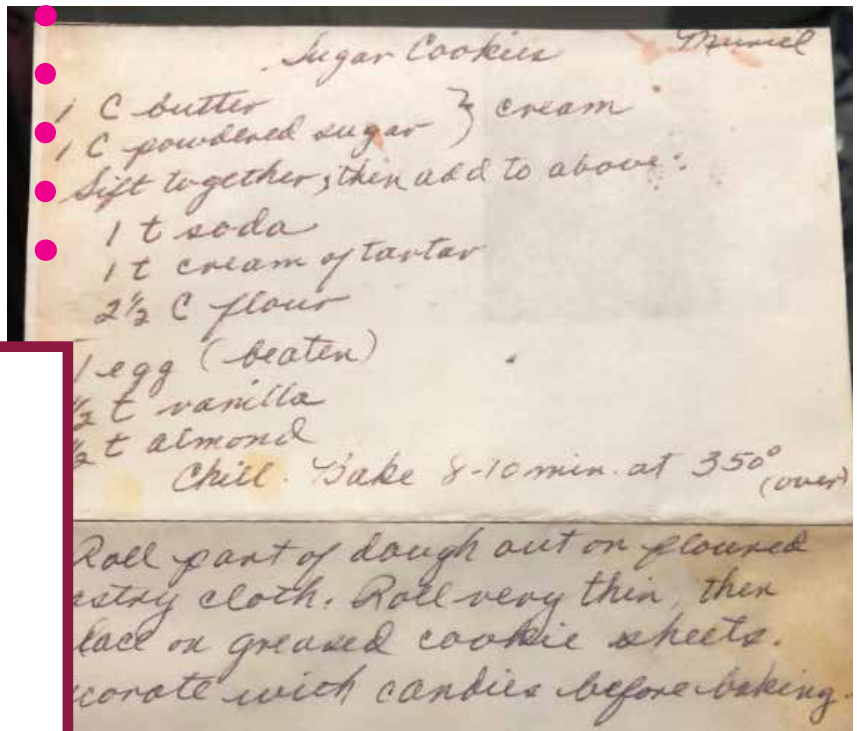 Sugar Cookies Muriel
1 C butter
1 C powdered sugar } cream
Sift together, then add to above:
1 t soda
1 t cream of tartar
2½ C flour
1 egg (beaten)
½ t vanilla
½ t almond
Chill. Bake 8-10 min. at 350°
(over)
Roll part of dough out on floured
astry cloth. Roll very thin, then
lace on greased cookie sheets.
corate with candies before baking.